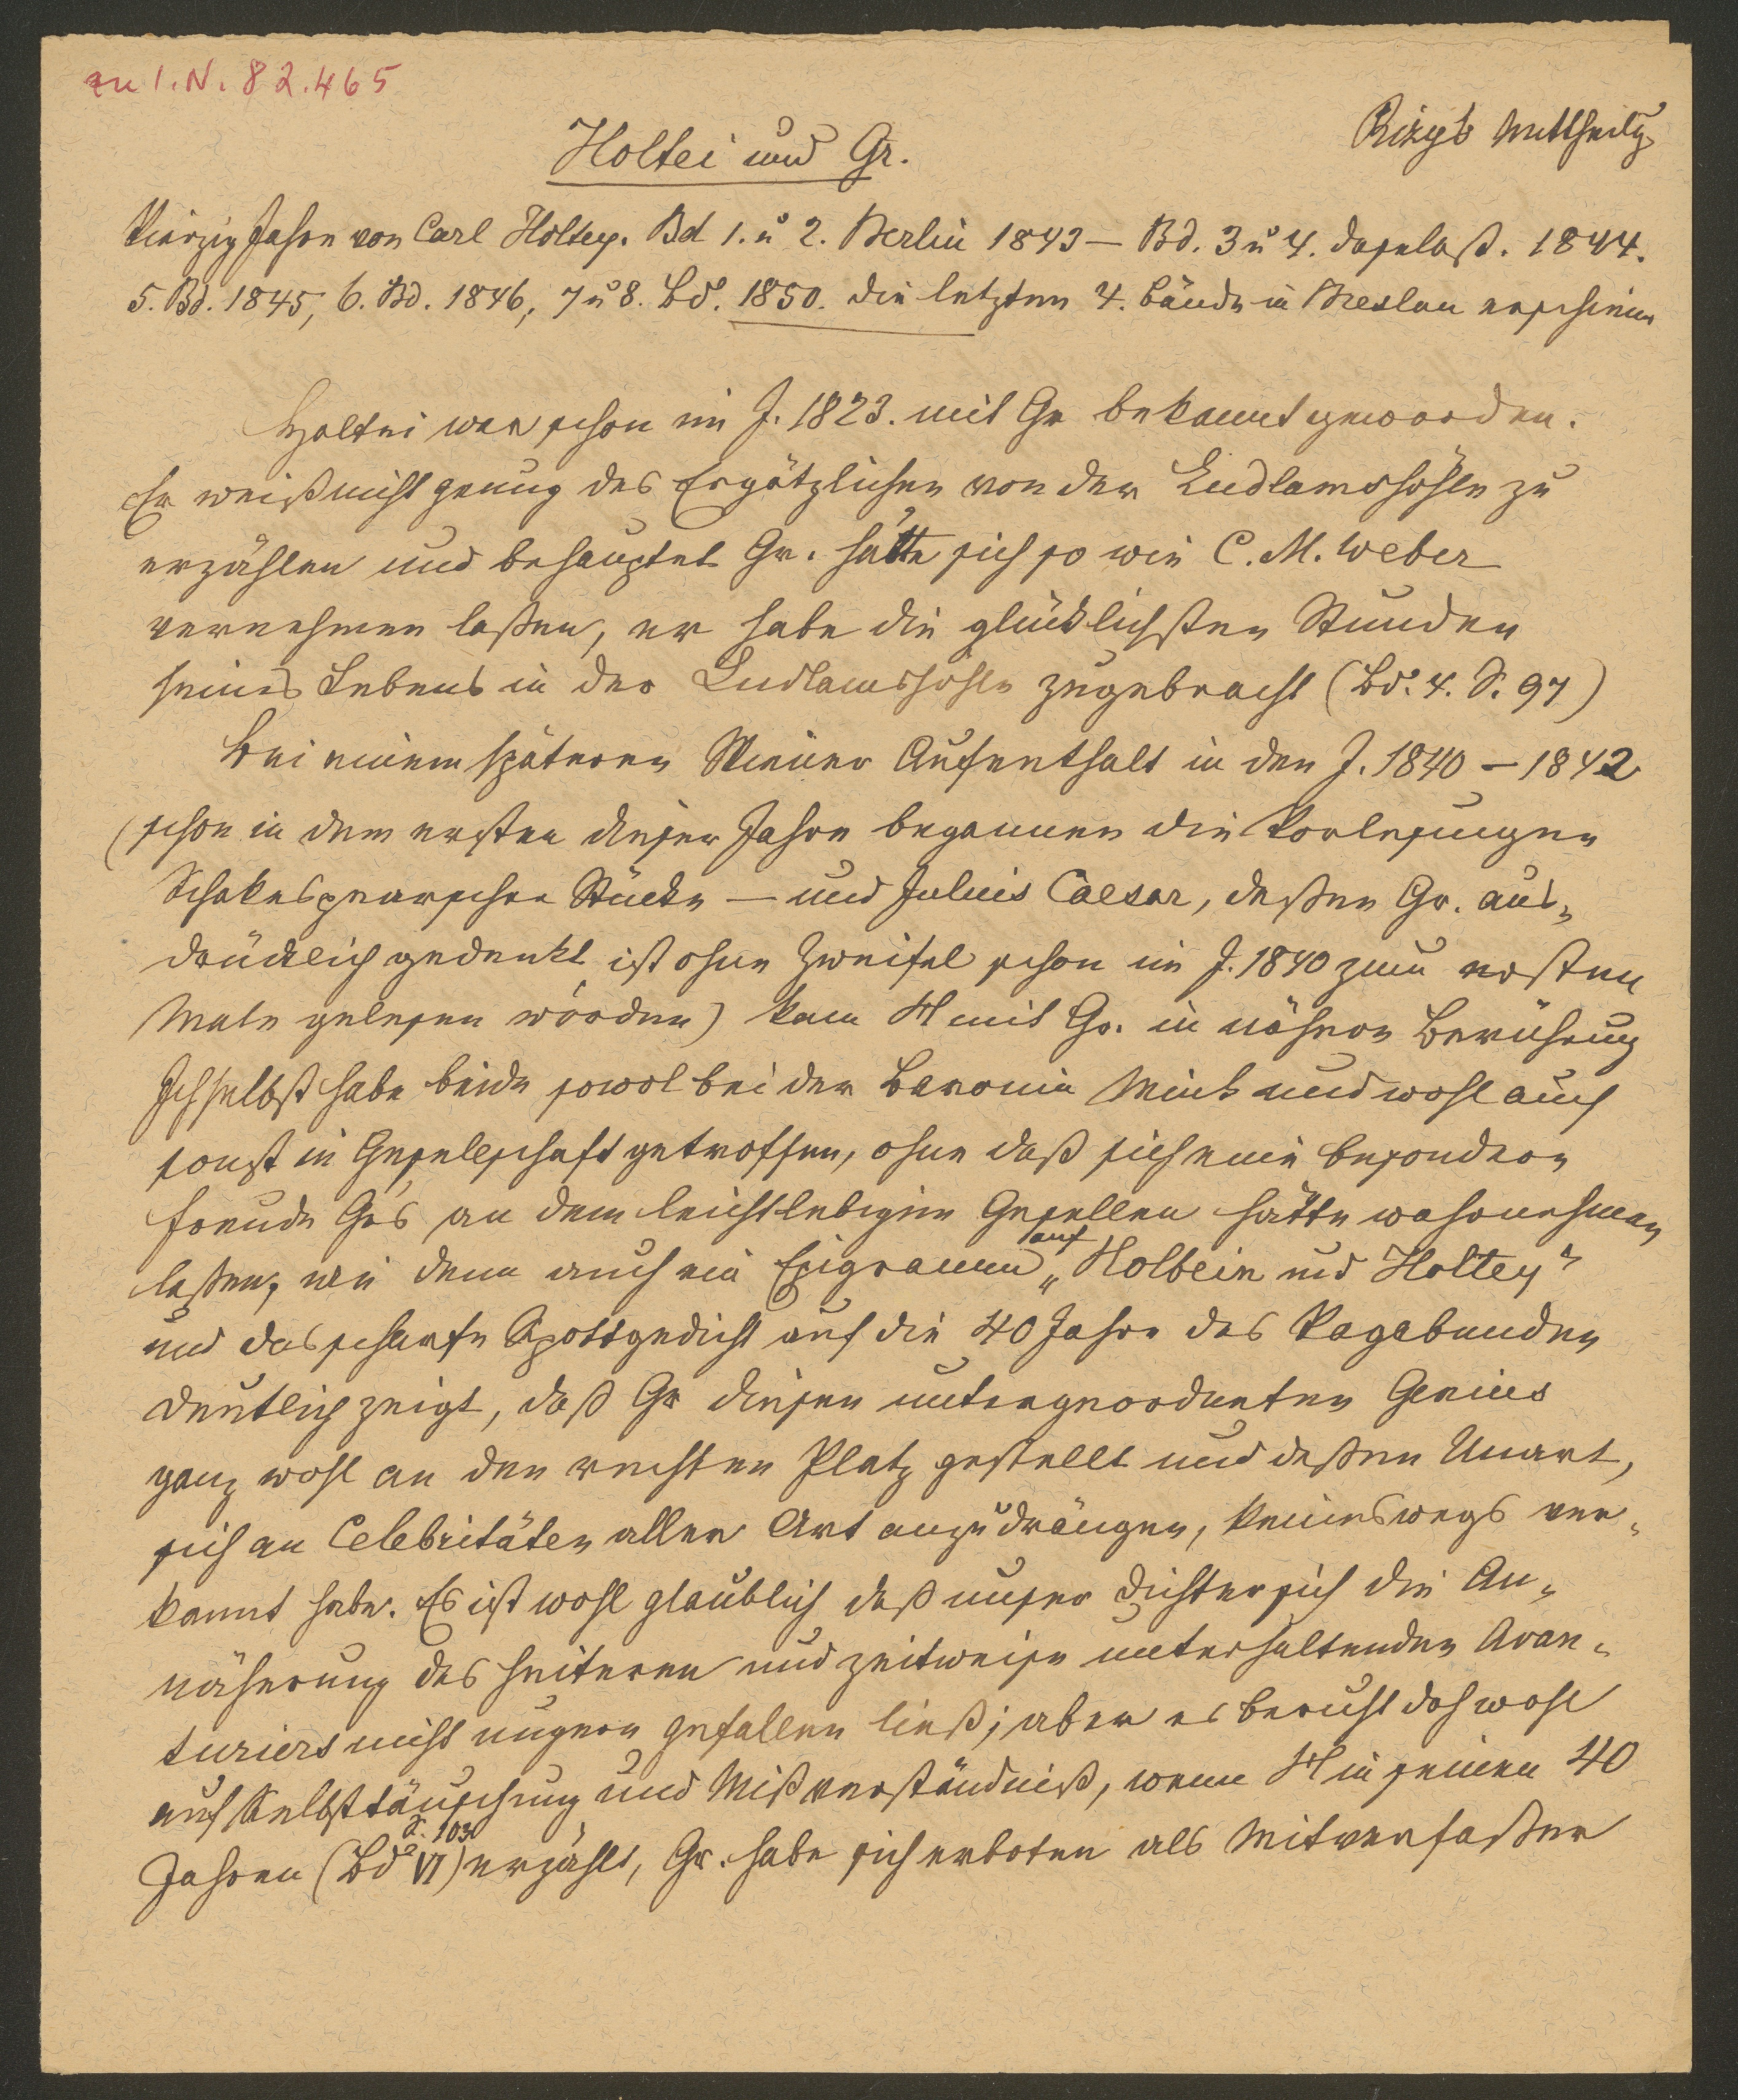 zu I.N. 82.465
Rizy's Mittheilg
Holtei und Gr.
Vierzig Jahre von Carl Holtey. Bd 1. u 2. Berlin 1843 — Bd. 3 u 4. daselbst. 1844.
5. Bd. 1845, 6. Bd. 1846, 7 u 8. Bd. 1850. die letzten 4. Bände in Breslau erschienen
Holtei war schon im J. 1823. mit Gr bekannt geworden.
Er weiß nicht genug des Ergötzlichen von der Ludlamshöhle zu
erzählen und behauptet Gr. hätte sich so wie C. M. Weber
vernehmen laßen, er habe die glücklichsten Stunden
seines Lebens in der Ludlamshöhle zugebracht (Bd. 4. S. 97)
Bei einem späteren Wiener Aufenthalt in den J. 1840 – 1842
(schon in dem ersten dieser Jahre begannen die Vorlesungen
Schakespearscher Stücke — und Julius Caesar, deßen Gr. aus„
drücklich gedenkt ist ohne Zweifel schon im J. 1840 zum ersten
Male gelesen worden) kam H mit Gr. in nähere Berührung
Ich selbst habe beide sowol bei der Baronin Mink und wohl auch
sonst in Gesellschaft getroffen, ohne daß sich eine besondere
Freude Gr's an dem leichtlebigen Gesellen hätte wahrnehmen
laßen, wie denn auch ein Epigramm auf „Holbein und Holtey"
und das scharfe Spottgedicht auf die 40 Jahre des Vagabunden
deutlich zeigt, daß Gr diesen untergeordneten Genius
ganz wohl an den rechten Platz gestellt und deßen Unart,
sich an Celebritäten aller Art anzudrängen, keineswegs ver„
kannt habe. Es ist wohl glaublich daß unser Dichter sich die An„
näherung des heiteren und zeitweise unterhaltenden Avan„
turiers nicht ungern gefallen ließ; aber es beruht doch wohl
auf Selbsttäuschung und Mißverständniß, wenn H in seinen 40
Jahren (Bd VI S. 103) erzählt, Gr. habe sich erboten als Mitverfaßer